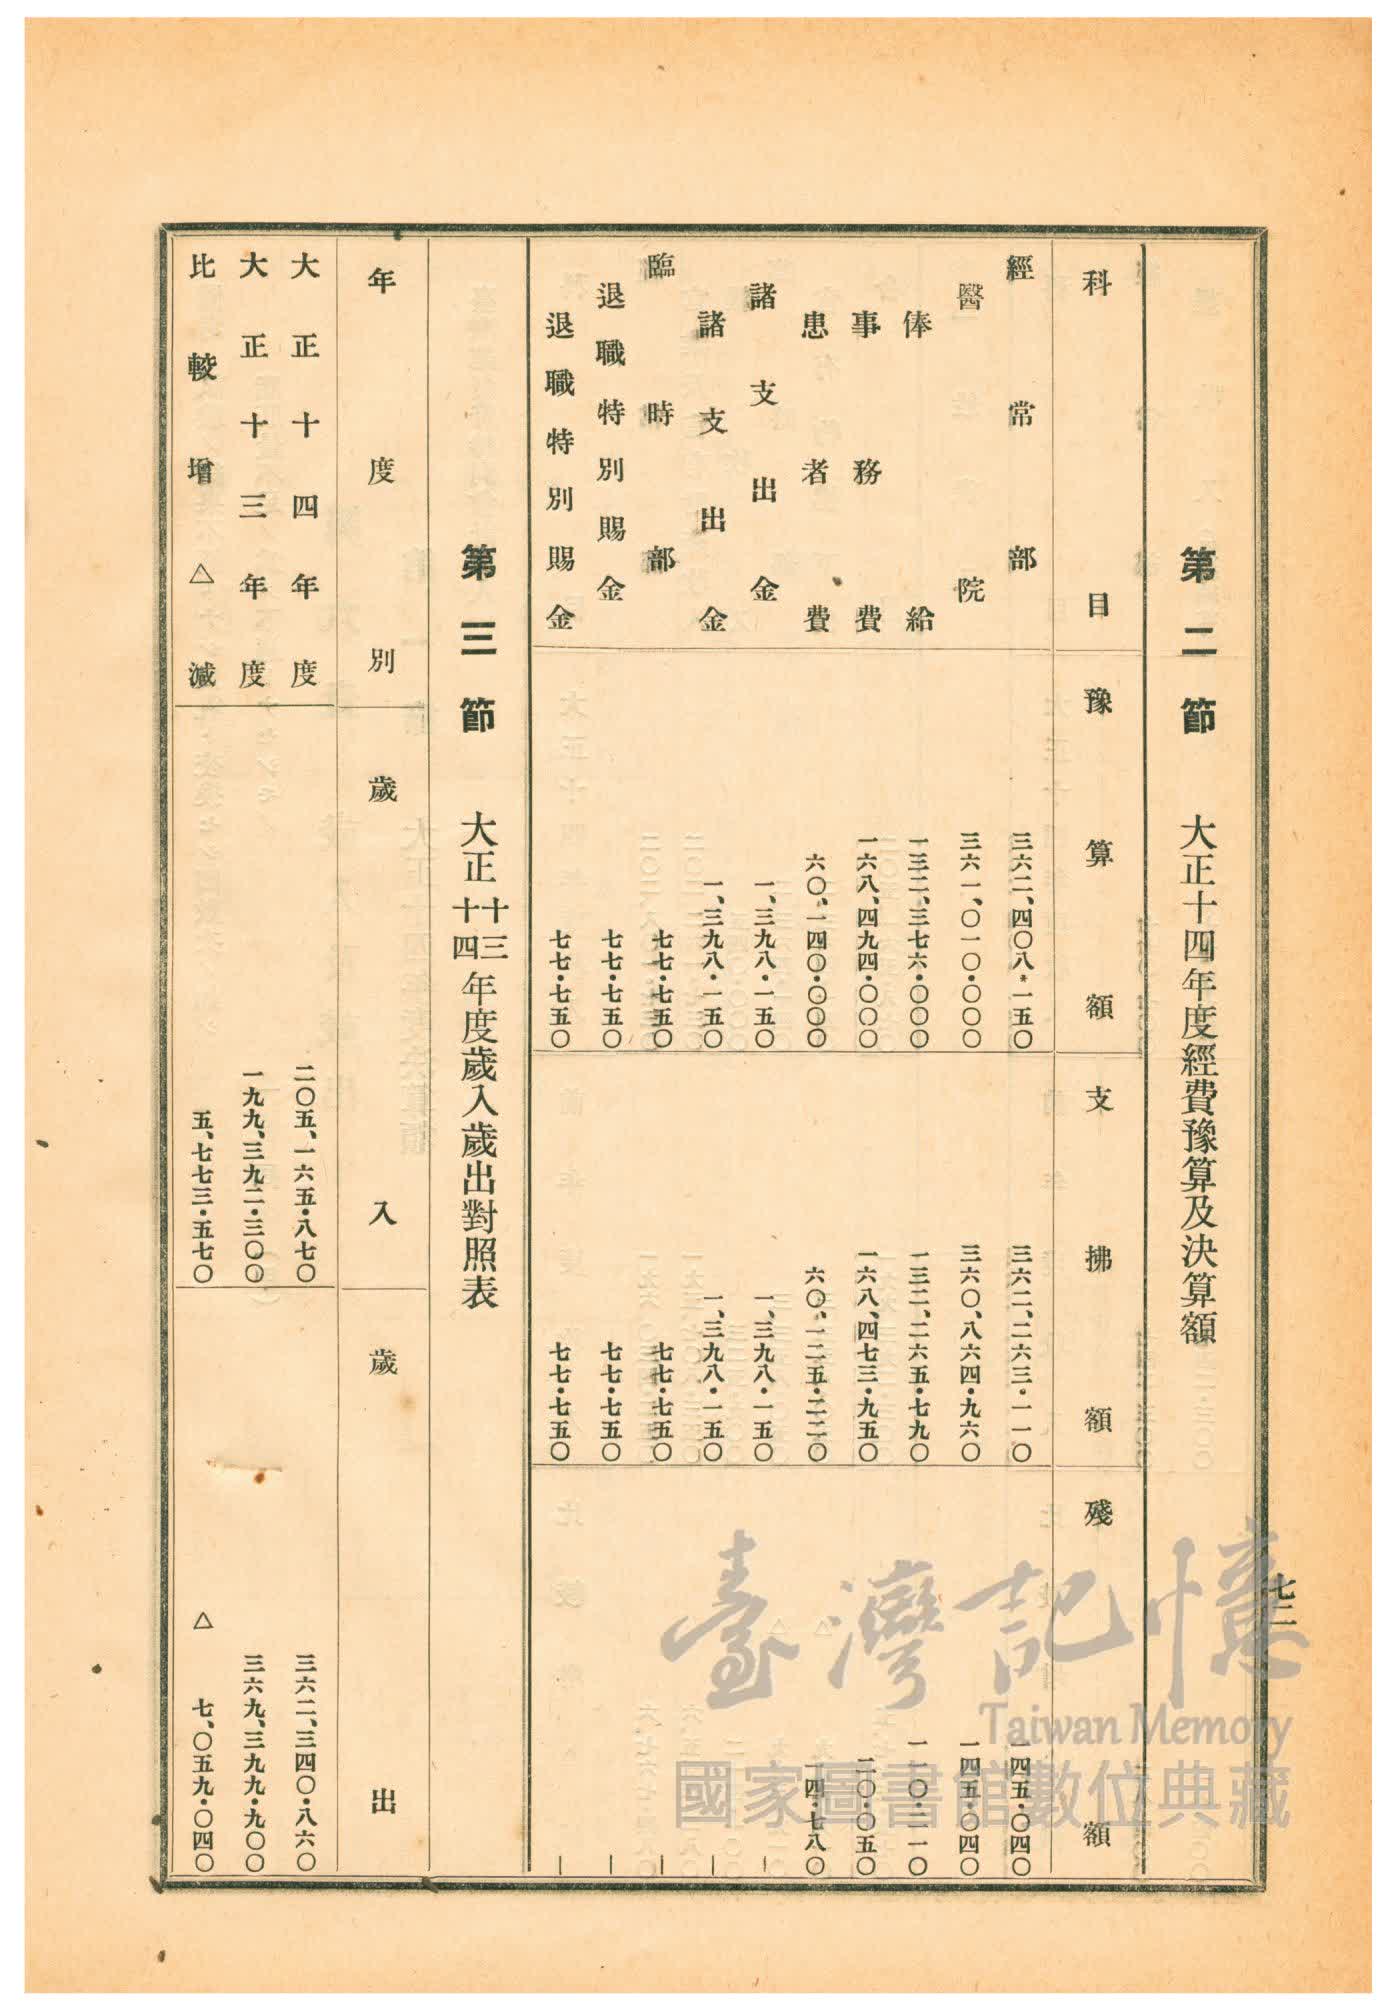 七二
第二節　大正十四年度經費豫算及決算額
科目　豫算額　支拂額　殘額
經常部　三六二、四〇八・一五〇　三六二、二六三・一一〇　一四五・〇四〇
醫院　三六一、〇一〇・〇〇〇　三六〇、八六四・九六〇　一四五・〇四〇
俸給　一三二、三七六・〇〇〇　一三二、二六五・七九〇　一一〇・二一〇
事務費　一六八、四九四・〇〇〇　一六八、四七三・九五〇　二〇・〇五〇
患者費　六〇、一四〇・〇〇〇　六〇、一二五・二二〇　一四・七八〇
諸支出金　一、三九八・一五〇　一、三九八・一五〇　—
諸支出金　一、三九八・一五〇　一、三九八・一五〇　—
臨時部　七七・七五〇　七七・七五〇　—
退職特別賜金　七七・七五〇　七七・七五〇　—
退職特別賜金　七七・七五〇　七七・七五〇　—
第三節　大正十三十四年度歲入歲出對照表
年度別　歲入　歲出
大正十四年度　二〇五、一六五・八七〇　三六二、三四〇・八六〇
大正十三年度　一九九、三九二・三〇〇　三六九、三九九・九〇〇
比較增△減　五、七七三・五七〇　△七、〇五九・〇四〇
臺灣記憶
Taiwan Memory
國家圖書館數位典藏